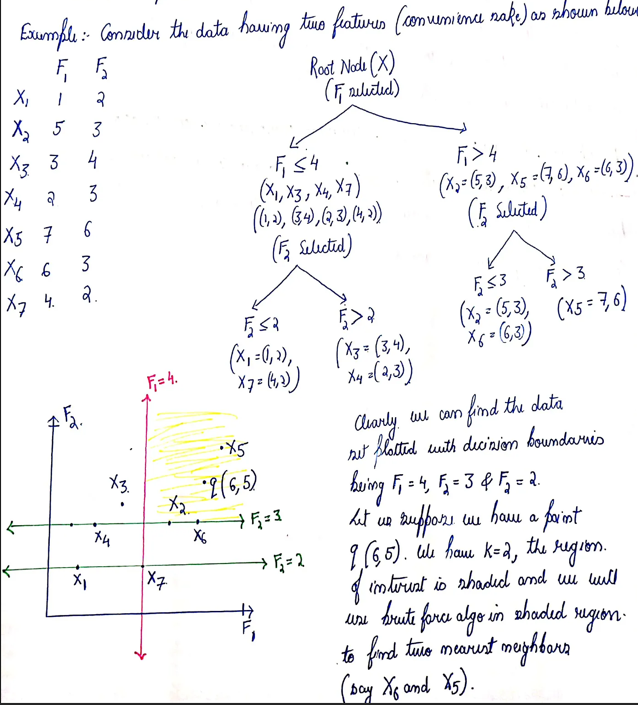 Example:- Consider the data having two features (convenience sake) as shown below
F₁ F₂
X₁ 1 2
X₂ 5 3
X₃ 3 4
X₄ 2 3
X₅ 7 6
X₆ 6 3
X₇ 4. 2.
Root Node (X)
(F₁ selected)
F₁ ≤ 4
(X₁, X₃, X₄, X₇)
((1,2), (3,4), (2,3), (4,2))
(F₂ Selected)
F₁ > 4
(X₂=(5,3), X₅=(7,6), X₆=(6,3))
(F₂ Selected)
F₂ ≤ 2
(X₁=(1,2),
X₇=(4,2))
F₂ > 2
(X₃=(3,4),
X₄=(2,3))
F₂ ≤ 3
(X₂=(5,3),
X₆=(6,3))
F₂ > 3
(X₅=7,6)
F₁=4.
F₂
X5
X₃
q(6,5)
X₂
F₂=3
X₄
X₆
F₂=2
X₁
X₇
F₁
Clearly we can find the data
set plotted with decision boundaries
being F₁=4, F₂=3 & F₂=2.
Let us suppose we have a point
q(6,5). We have K=2, the region.
of interest is shaded and we will
use brute force algo in shaded region.
to find two nearest neighbors
(say X₆ and X₅).